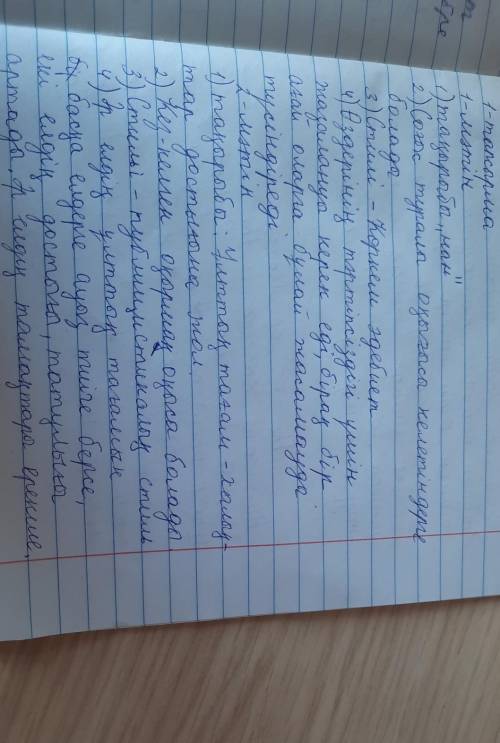 1-тапсырма
1-мәтін
1) тақырыбы „нан"
2) Соғыс туралы оқығысы келетіндерге
болады
3) Стилі - Көркем әдебиет
4) Өздерінің тәртіпсіздігі үшін
жазалануы керек еді, бірақ бір
ағай оларға бұлай жасамауды
түсіндіреді
2-мәтін
1) тақырыбы: Ұлттық тағам - халық-
тар достығына жол
2) Кез-келген оқырман оқыса болады.
3) Стилі - публицистикалық стиль
4) Әр елдің ұлттық тағамын
біз басқа елдерге ауыз тиіге берсе,
екі елдің достығы, татулығы
артады, әр елдің тамақтары ерекше,